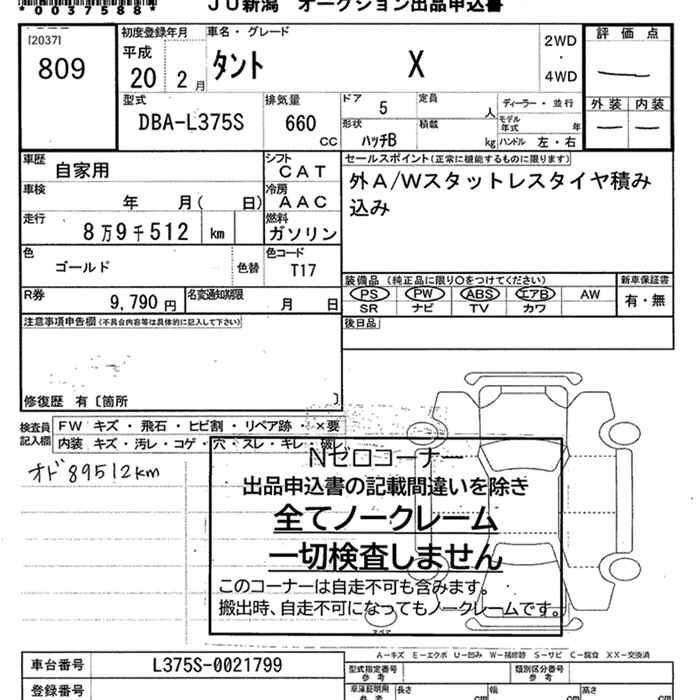 *0037588*
JU新潟 オークション出品申込書
[2037]
809
初度登録年月
平成
20 2月
車名・グレード
タント X
2WD
・
4WD
評価点
外装 内装
型式
DBA-L375S
排気量
660
CC
ドア 5
形状 ハッチB
定員 人
積載 kg
ディーラー・並行
モデル年式 年
ハンドル 左・右
車歴 自家用
シフト CAT
セールスポイント(正常に機能するものに限ります)
外A/Wスタットレスタイヤ積み
込み
車検 年 月( 日)
冷房 AAC
走行 8万9千512 km
燃料 ガソリン
色 ゴールド 色替
色コード T17
R券 9,790円
名変通知期限 月 日
装備品(純正品に限り○をつけてください)
PS PW ABS エアB AW
SR ナビ TV カワ
新車保証書
有・無
注意事項申告欄(不具合内容等は具体的に記入して下さい)
後日品
修復歴 有〔箇所 〕
検査員記入欄
FW キズ・飛石・ヒビ割・リペア跡・×要
内装 キズ・汚レ・コゲ・穴・スレ・キレ・破レ
オド89512km
Nゼロコーナー
出品申込書の記載間違いを除き
全てノークレーム
一切検査しません
このコーナーは自走不可も含みます。
搬出時、自走不可になってもノークレームです。
スペア
A-キズ E-エクボ U-凹み W-補修跡 S-サビ C-腐食 XX-交換済
車台番号 L375S-0021799
登録番号
型式指定番号 参考
類別区分番号 参考
車庫証明用 参考
長さ cm
幅 cm
高さ cm